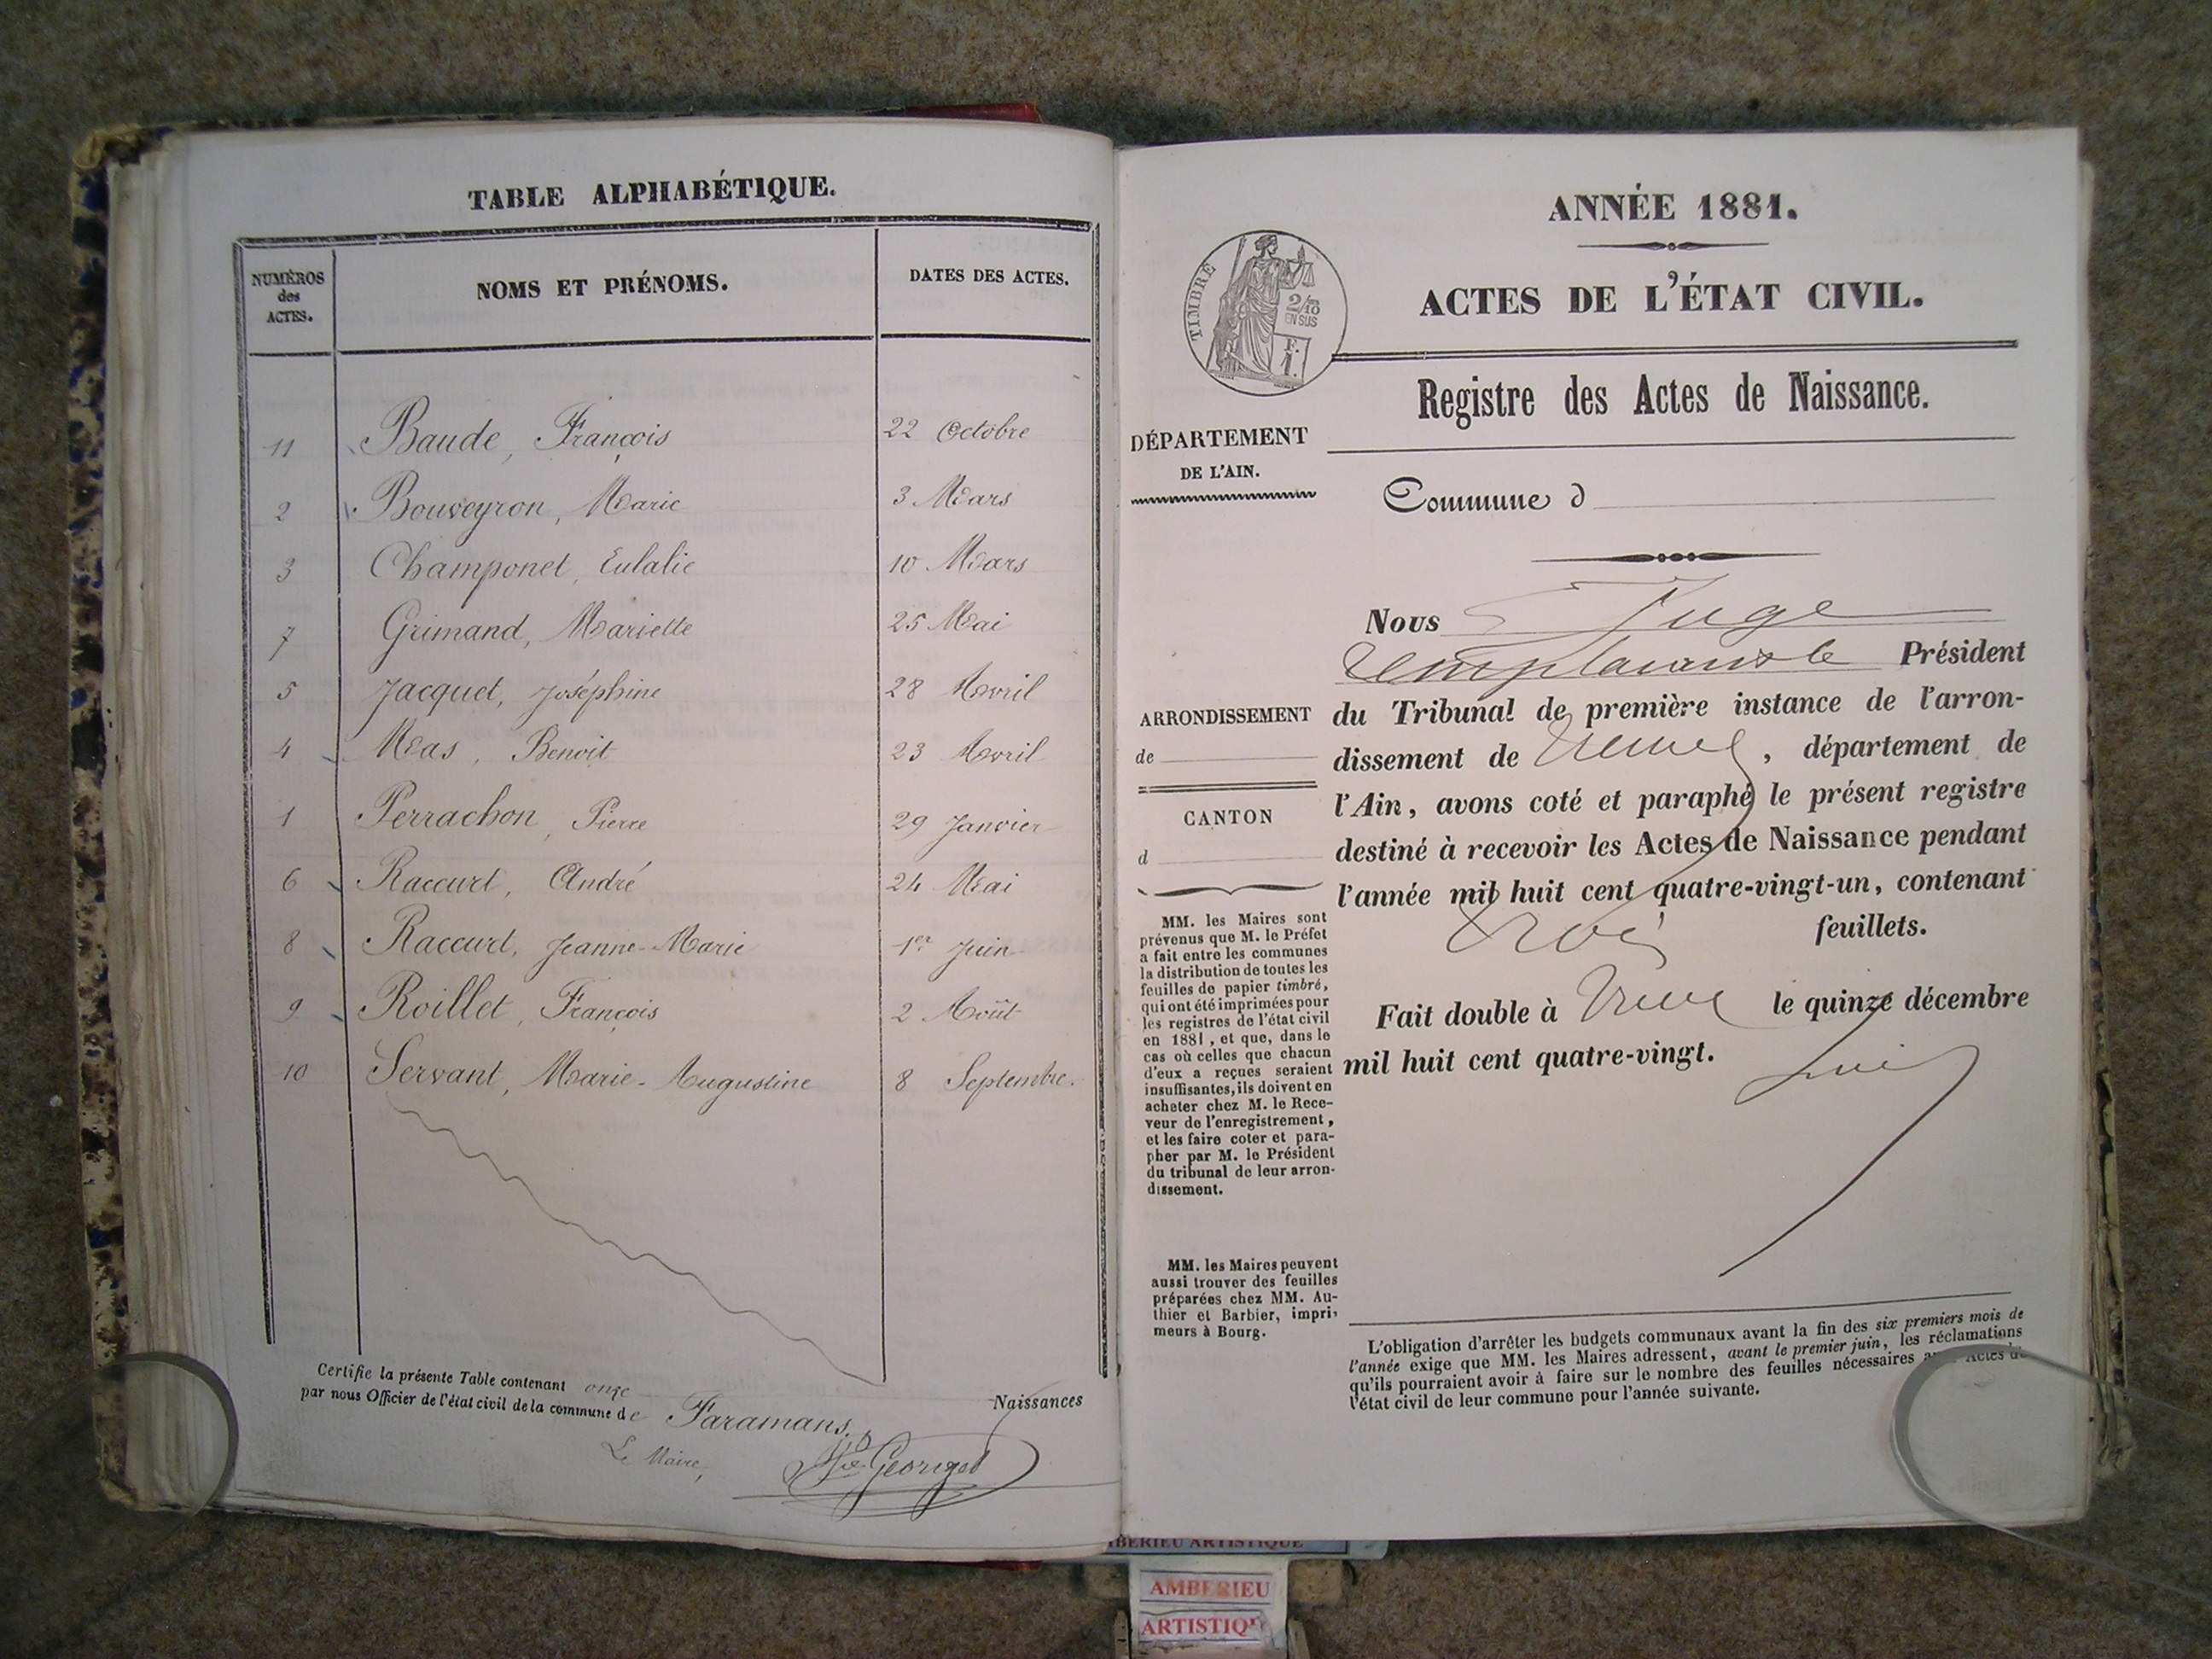 TABLE ALPHABÉTIQUE.
NUMÉROS des ACTES.
NOMS ET PRÉNOMS.
DATES DES ACTES.
11 Baude, François 22 Octobre
2 Bouveyron, Marie 3 Mars
3 Champonet, Eulalie 10 Mars
7 Grimand, Mariette 25 Mai
5 Jacquet, Joséphine 28 Avril
4 Mas, Benoit 23 Avril
1 Perrachon, Pierre 29 Janvier
6 Raccurt, André 24 Mai
8 Raccurt, Jeanne-Marie 1er Juin
9 Roillet, François 2 Août
10 Servant, Marie-Augustine 8 Septembre.
Certifie la présente Table contenant onze Naissances
par nous Officier de l'état civil de la commune de Faramans.
Le Maire,
Georges
ANNÉE 1881.
ACTES DE L'ÉTAT CIVIL.
TIMBRE
2/10
EN SUS
F.
1.
Registre des Actes de Naissance.
DÉPARTEMENT
DE L'AIN.
Commune d
Nous Juge
remplaçant le Président
du Tribunal de première instance de l'arron-
dissement de Trévoux, département de
l'Ain, avons coté et paraphé le présent registre
destiné à recevoir les Actes de Naissance pendant
l'année mil huit cent quatre-vingt-un, contenant
trois feuillets.
Fait double à Trévoux le quinze décembre
mil huit cent quatre-vingt.
ARRONDISSEMENT
de
CANTON
d
MM. les Maires sont
prévenus que M. le Préfet
a fait entre les communes
la distribution de toutes les
feuilles de papier timbré,
qui ont été imprimées pour
les registres de l'état civil
en 1881, et que, dans le
cas où celles que chacun
d'eux a reçues seraient
insuffisantes, ils doivent en
acheter chez M. le Rece-
veur de l'enregistrement,
et les faire coter et para-
pher par M. le Président
du tribunal de leur arron-
dissement.
MM. les Maires peuvent
aussi trouver des feuilles
préparées chez MM. Au-
thier et Barbier, impri-
meurs à Bourg.
L'obligation d'arrêter les budgets communaux avant la fin des six premiers mois de
l'année exige que MM. les Maires adressent, avant le premier juin, les réclamations
qu'ils pourraient avoir à faire sur le nombre des feuilles nécessaires aux Actes de
l'état civil de leur commune pour l'année suivante.
BERIEU ARTISTIQUE
AMBERIEU
ARTISTIQU